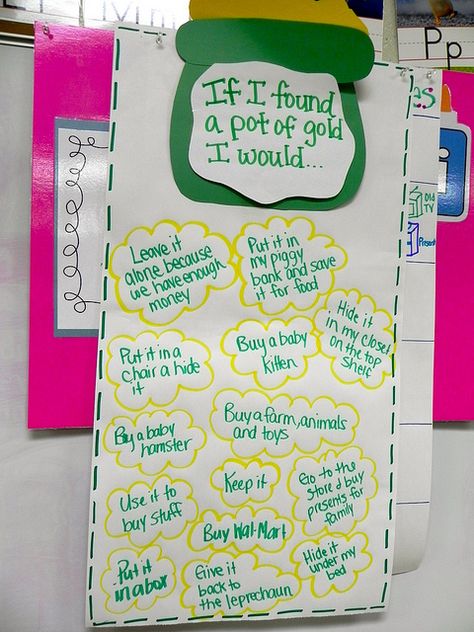 If I found
a pot of gold
I would...
Leave it
alone because
we have enough
money
Put it in
my piggy
bank and save
it for food
Hide it
in my closet
on the top
shelf
Put it in a
chair a hide
it
Buy a baby
kitten
Buy a baby
hamster
Buy a farm, animals
and toys
Use it to
buy stuff
Keep it
Go to the
store & buy
presents for
family
Buy Wal-Mart
Put it
in a box
Give it
back to
the leprechaun
Hide it
under my
bed
Pp
es
Old
TV
Present